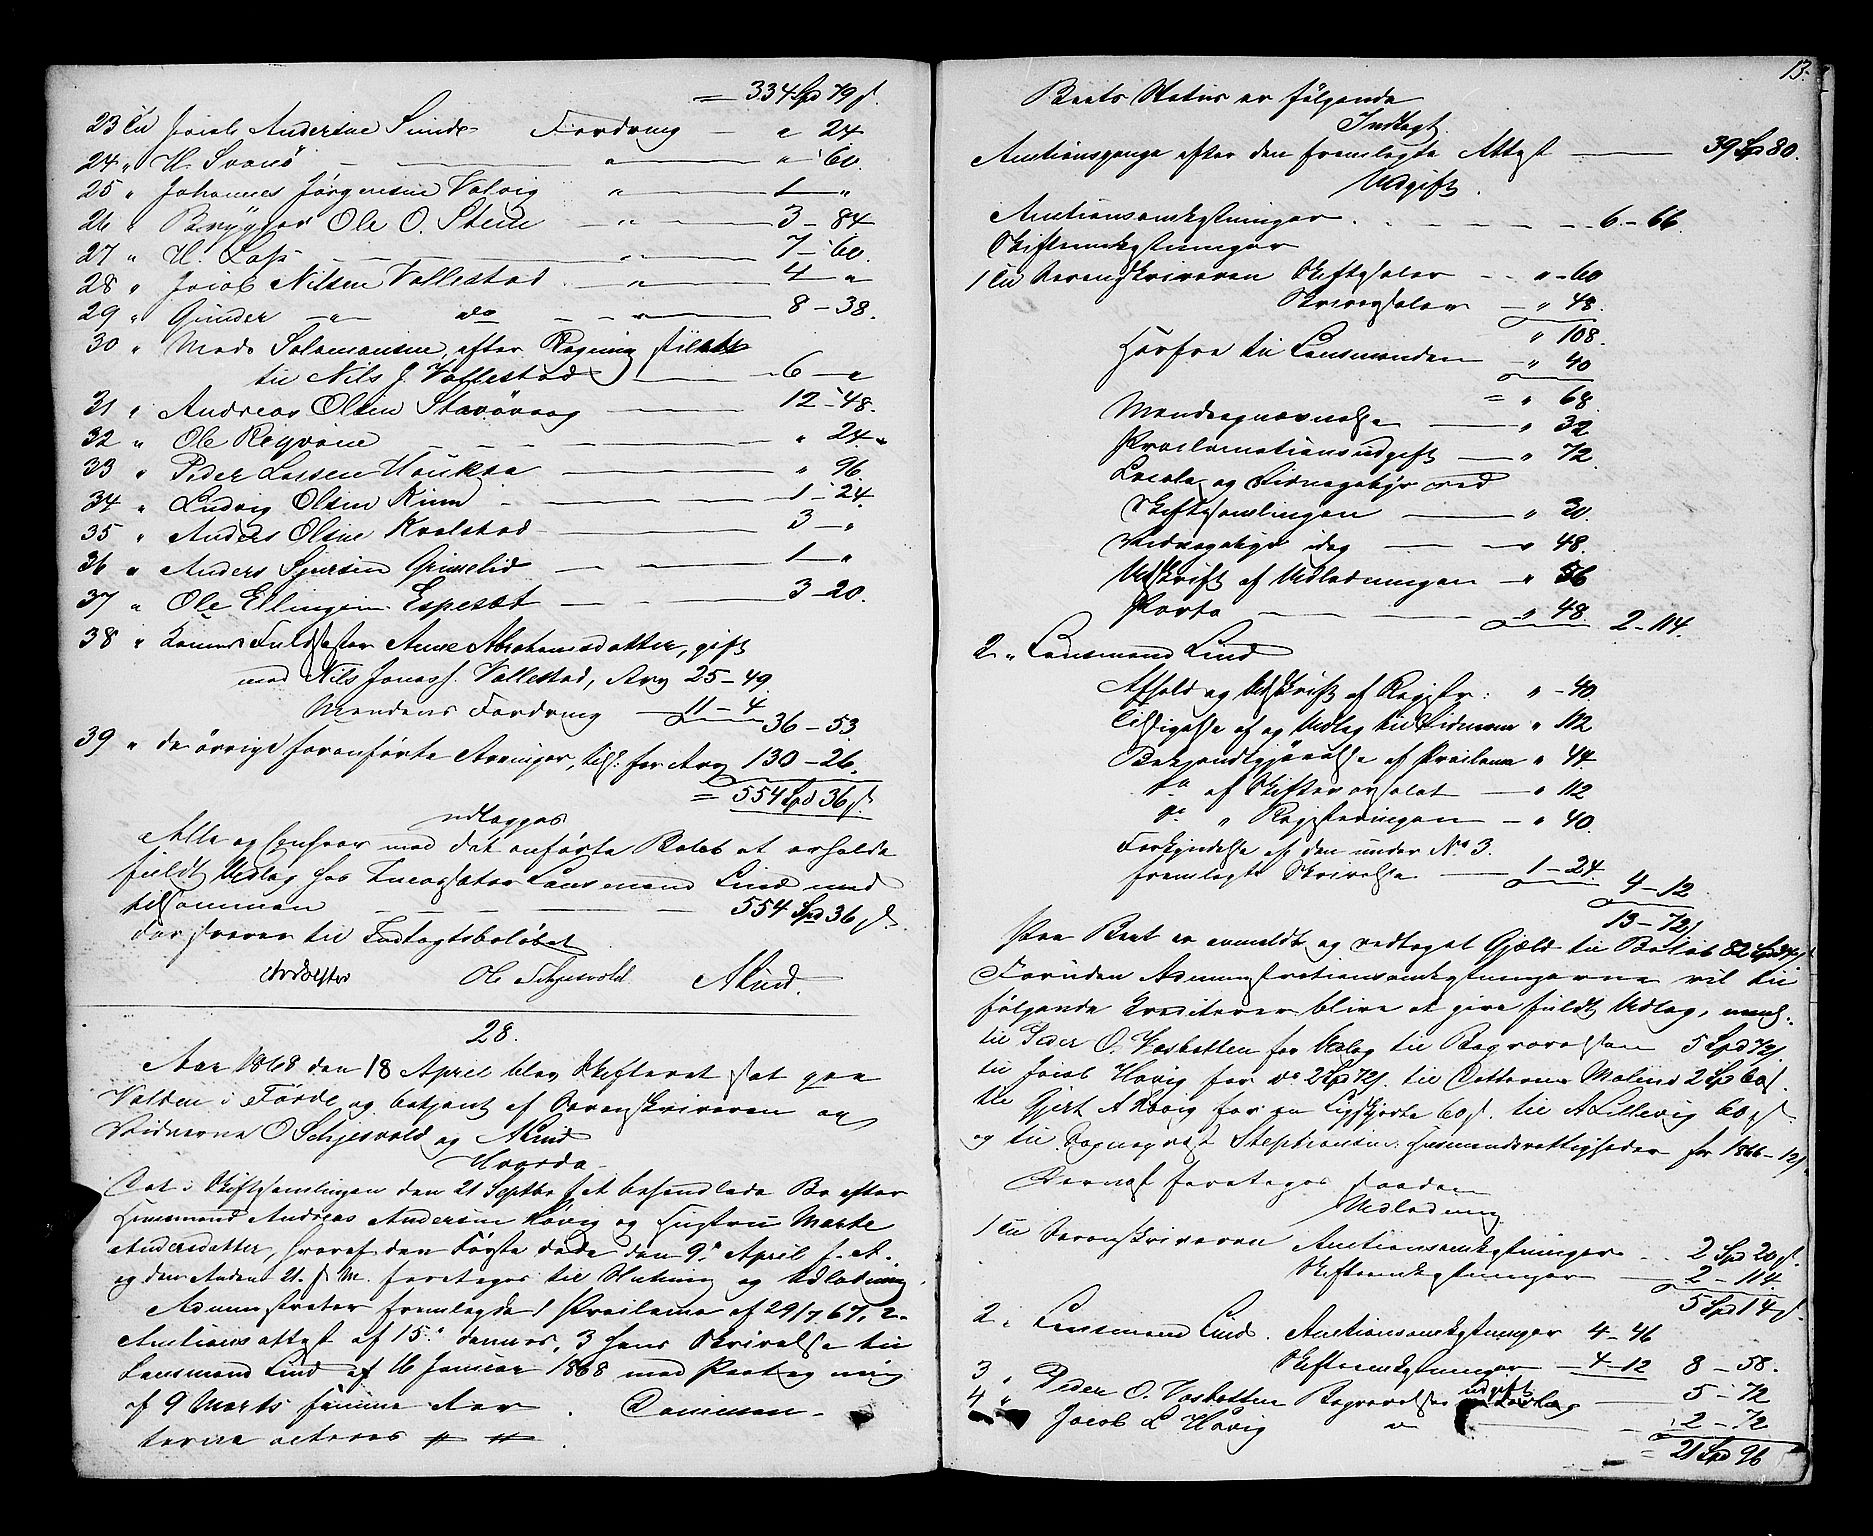 = 334 Spd 79 s.
23 til Jacob Andersen Sunde Fordring — " 24
24 " H. Svanö — " — " 60.
25 " Johannes Jörgensen Valvig " — 1 — "
26 " Brygger Ole O. Steen — " — 3 – 84
27 " H. Lass — " — 7 – 60.
28 " Jacob Nilsen Vallestad — " — 4 — "
29 " Gunder — " — do — " — 8 – 38.
30 " Mads Salamonsen, efter Regning
til Nils J. Vallestad — 6 — "
31 " Andreas Olsen Stavövaag — 12 – 48.
32 " Ole — " 24. "
33 " Peder Lassen — " 96.
34 " Ludvig Olsen — 1 – 24.
35 " Anders Olsen Kvalstad — 3 — "
36 " Anders Sjursen Grimelid — 1 — "
37 " Ole Ellingsen Espeset — 3 – 20.
38 " Konens Fuldsöster Anne Abrahamsdatter, gift
med Nils Jonass. Vallestad, Arv 25 – 49
Mandens Fordring — 11 – 4
36 – 53.
39 " de övrige foranförte Arvinger, tils. for Arv 130 – 26.
= 554 Spd 36 s.
udlægges
Alle og Enhver med det anförte Belöb at erholde
fuldt Udlag hos Incassator Lensmand Lind med
tilsammen — 554 Spd 36 s.
der svarer til Indtægtsbelöbet
Ole Schjesvold ALind.
28.
Aar 1868 den 18 April blev Skifteret sat paa
Halden i Förde og betjent af Sorenskriveren og
Vidnerne O Schjesvold og ALind
Hvorda
Det i Skiftesamlingen den 21 Septbr f. A. behandlede Bo efter
Huusmand Andreas Andersen Hövig og Hustru Marte
Andersdatter, hvoraf den Förste döde den 9. April f. A.
og den Anden 21. s. M. foretoges til Slutning og Udlodning
Administrator fremlagde 1 Proclama af 29/7 67, 2
Auctionsattest af 15. dennes, 3 hans Skrivelse til
Lensmand Lind af 16 Januar 1868 med Paategning
af 9 Marts samme Aar. Documen-
terne acteres # #.
13.
Boets Status er fölgende
Indtægt.
Auctionspenge efter den fremlagte Attest — 39 Spd 80.
Udgift.
Auctionsomkostninger — 6 – 66.
Skifteomkostninger
1 til Sorenskriveren Skiftesalær — " – 60
Skriversalær — " 48.
" 108.
Herfra til Lensmanden — " 40
= " 68.
Mandsopnævnelse — " 32.
Proclamationsudgift — " 72.
Locale og Vidnegebyr ved
Skiftesamlingen — " 30.
Vidnegebyr idag — " 48.
Udskrift af Udlodningen — " 56
Porto — " 48. 2 – 114.
2 " Lensmand Lind
Afhold og Udskrift af Registr: " – 40.
Tilsigelse af og Udlæg til Vidnerne " 112
Bekjendtgjörelse af Proclama " 44
do af Skiftevarselet — " 112
do " Registreringen — " 40.
Forkyndelse af den under No 3.
fremlagte Skrivelse — 1 – 24. 4 – 12
13 – 72 s
Paa Boet er anmeldt og vedtaget Gjæld til Belöb 82 Spd
Foruden Administrationsomkostningerne vil til
fölgende Creditorer blive at give fuldt Udlæg, neml:
til Peder O. Vasbotten for Udlæg til Begravelsen 5 Spd 72 s.
til Jacob Hovig for do 2 Spd 72 s. til Datteren Malene 2 Spd 60 s.
til Gjert A Hovig for en Ligskjorte 60 s. til A Lillevig 60 s.
og til Sognepræst Stephansen Husmandsrettigheder for 1866 – 12 s
Dernæst foretoges saadan
Udlodning
1 til Sorenskriveren Auctionsomkostninger — 2 Spd 20 s.
Skifteomkostninger — 2 – 114
5 Spd 14 s.
2 " Lensmand Lind. Auctionsomkostninger 4 – 46
Skifteomkostninger — 4 – 12 8 – 58.
3 " Peder O. Vasbotten Begravelsesudgift — 5 – 72
4 " Jacob L Hovig " — 2 – 72
= 21 Spd 96